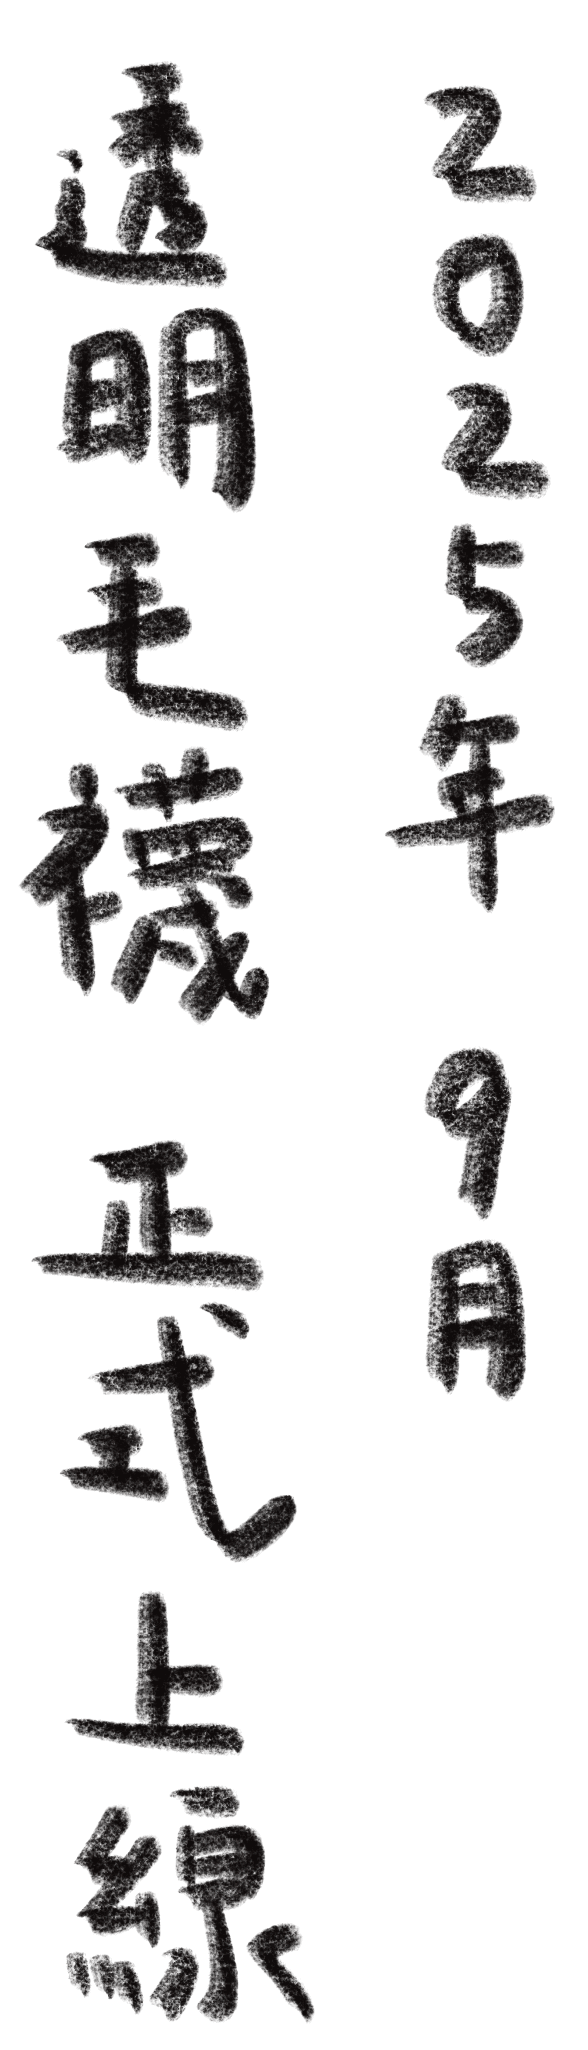 2025年 9月
透明毛襪 正式上線